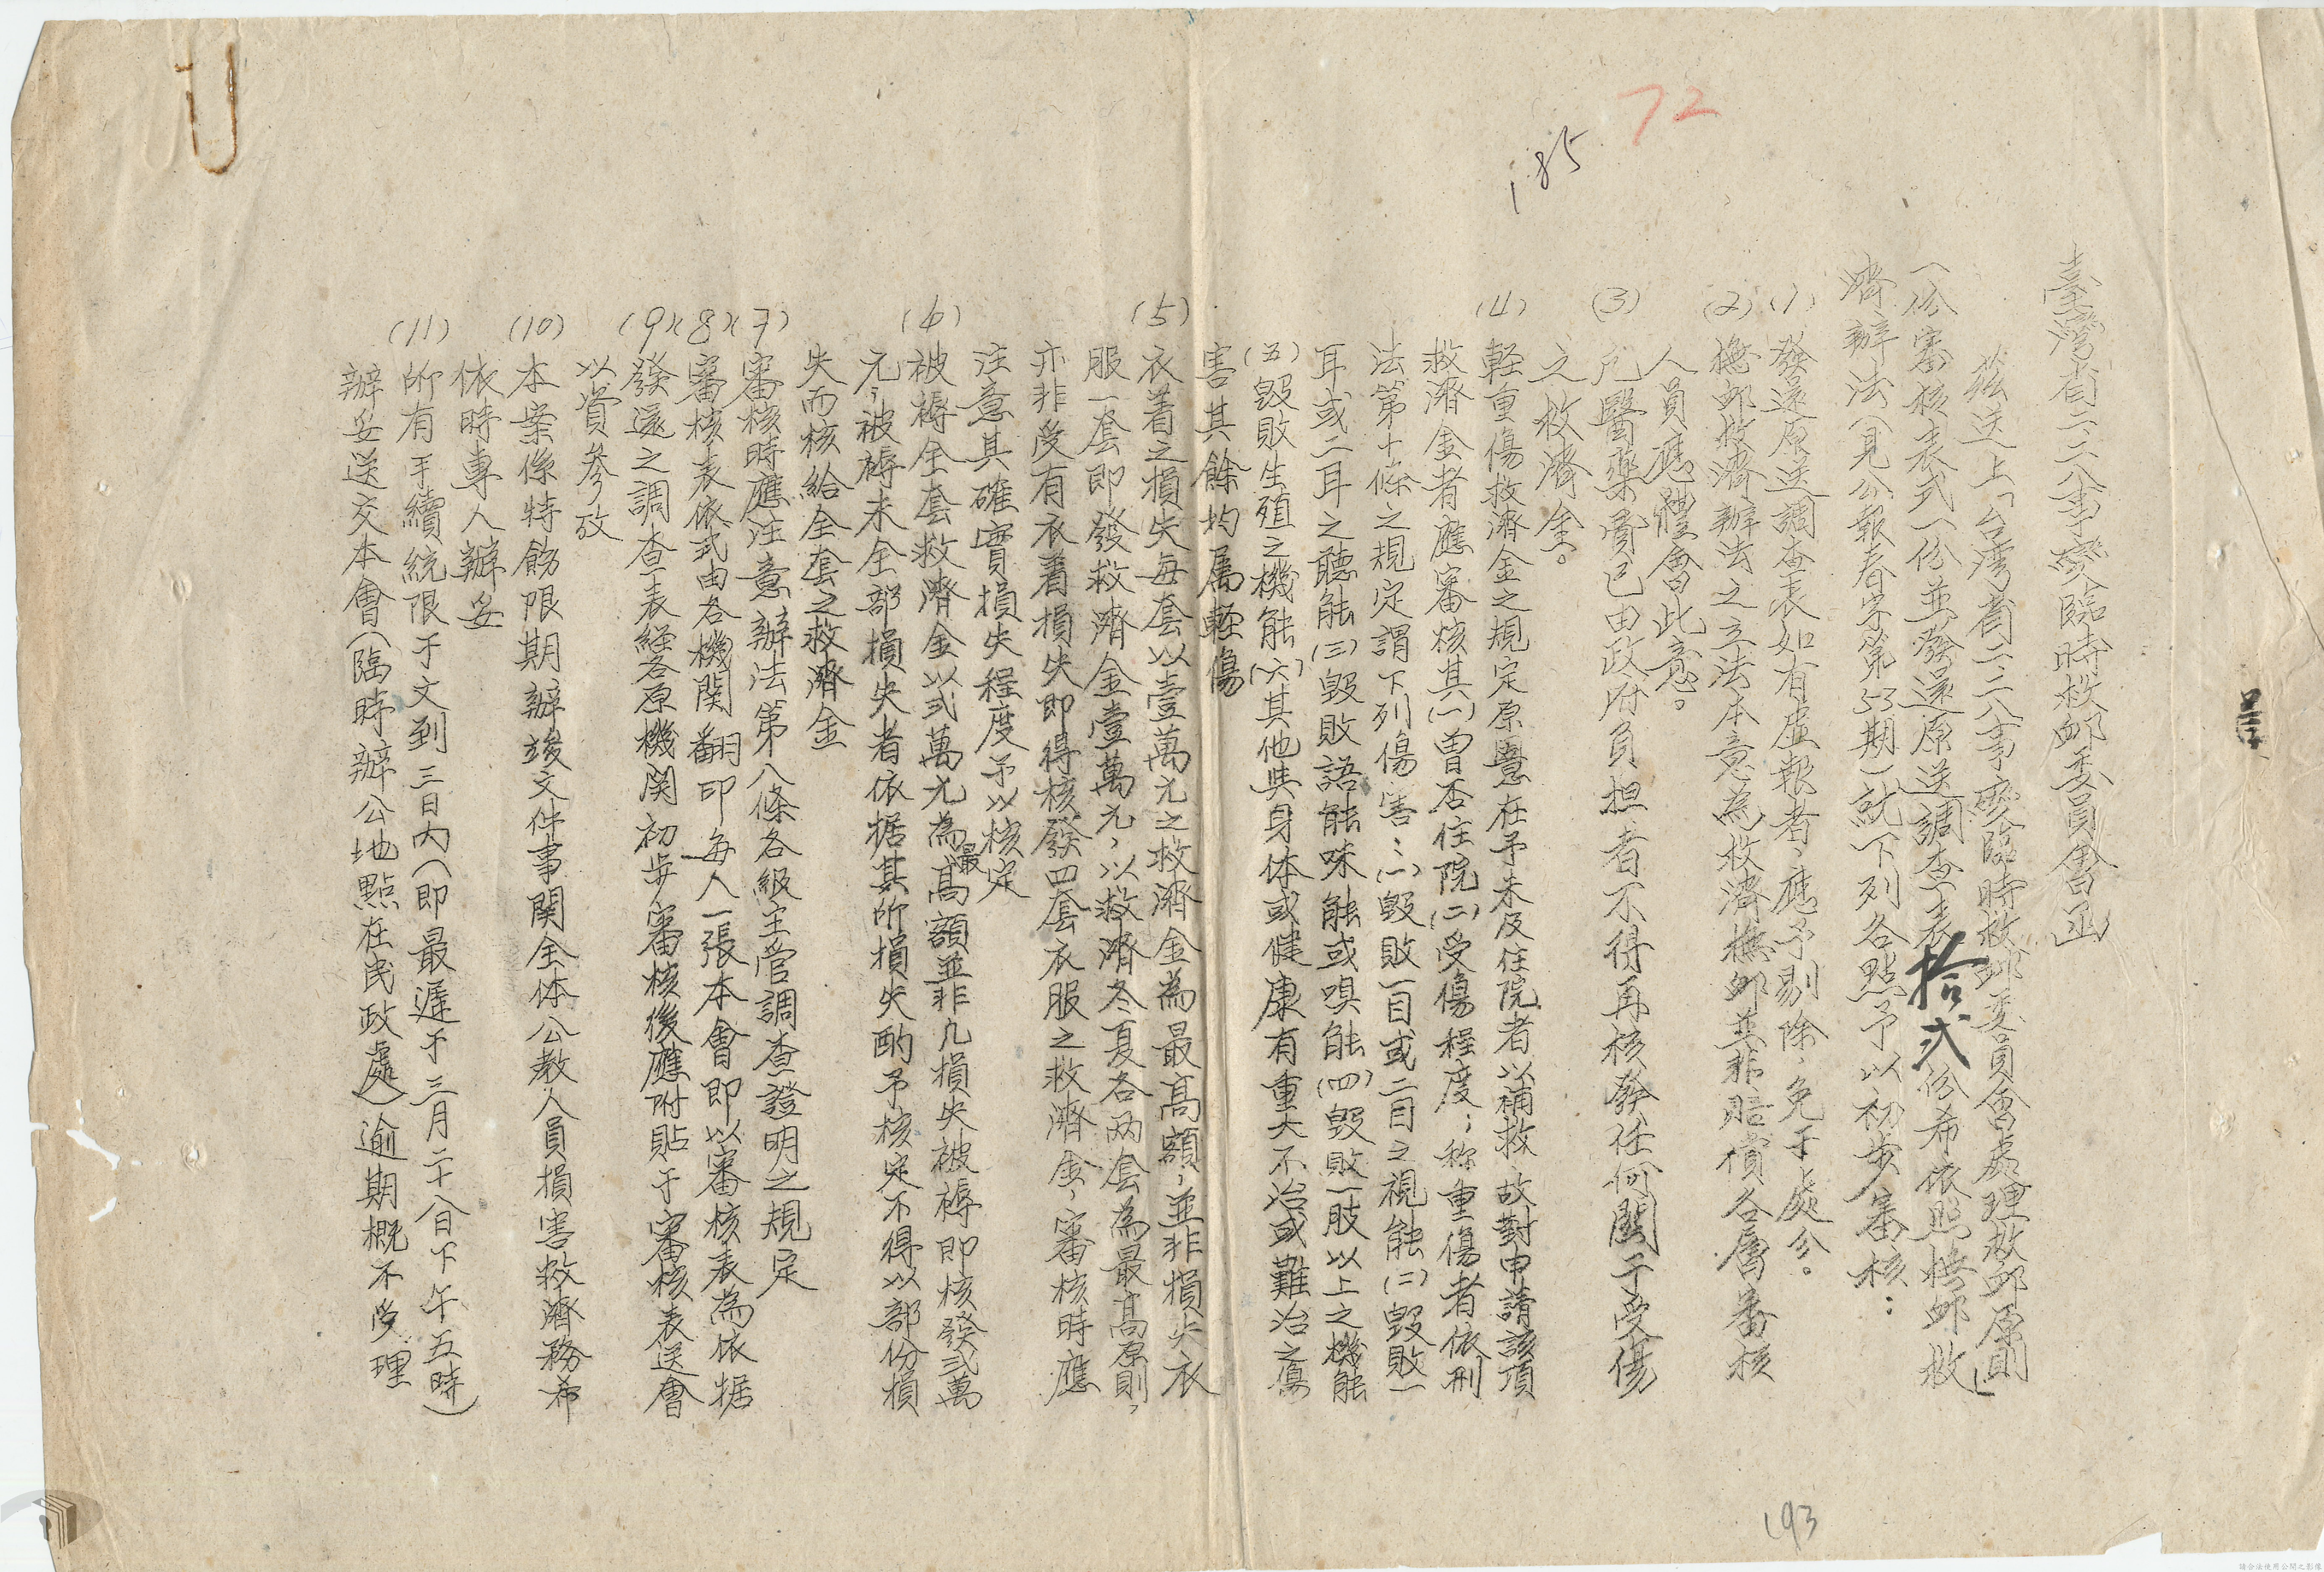 72
185
臺灣省二二八事變臨時救卹委員會函
茲送上「台灣省二二八事變臨時救卹委員會處理救卹原則」
一份審核表式一份並發還原送調查表拾弍份希依照撫卹救
濟辦法(見公報春字第53期)就下列各點予以初步審核：
(1) 發還原送調查表如有虛報者，應予剔除，免于處分。
(2) 撫卹救濟辦法之立法本意為救濟撫卹並非賠償各層審核
人員應體會此意。
(3) 凡醫藥費已由政府負担者不得再核發任何關于受傷
之救濟金。
(4) 輕重傷救濟金之規定原意在予未及住院者以補救，故對申請該項
救濟金者應審核其(一)曾否住院(二)受傷程度；称重傷者依刑
法第十條之規定謂下列傷害：(一)毀敗一目或二目之視能(二)毀敗一
耳或二耳之聽能(三)毀敗語能味能或嗅能(四)毀敗一肢以上之機能
(五)毀敗生殖之機能(六)其他與身体或健康有重大不治或難治之傷
害其餘均屬輕傷
(5) 衣着之損失每套以壹萬元之救濟金為最高額，並非損失衣
服一套即發救濟金壹萬元，以救濟冬夏各两套為最高原則，
亦非受有衣着損失即得核發四套衣服之救濟金，審核時應
注意其確實損失程度予以核定
(6) 被褥全套救濟金以弍萬元為最高額並非凡損失被褥即核發弍萬
元，被褥未全部損失者依据其所損失酌予核定不得以部份損
失而核給全套之救濟金
(7) 審核時應注意辦法第八條各級主管調查證明之規定
(8) 審核表依式由各機関翻印每人一張本會即以審核表為依据
(9) 發還之調查表經各原機関初步審核後應附貼于審核表送會
以資參攷
(10) 本案係特飭限期辦竣文件事関全体公教人員損害救濟務希
依時專人辦妥
(11) 所有手續統限于文到三日內(即最遲于三月二十八日下午五時)
辦妥送交本會(臨時辦公地點在民政處)逾期概不受理
193
請合法使用公開之影像